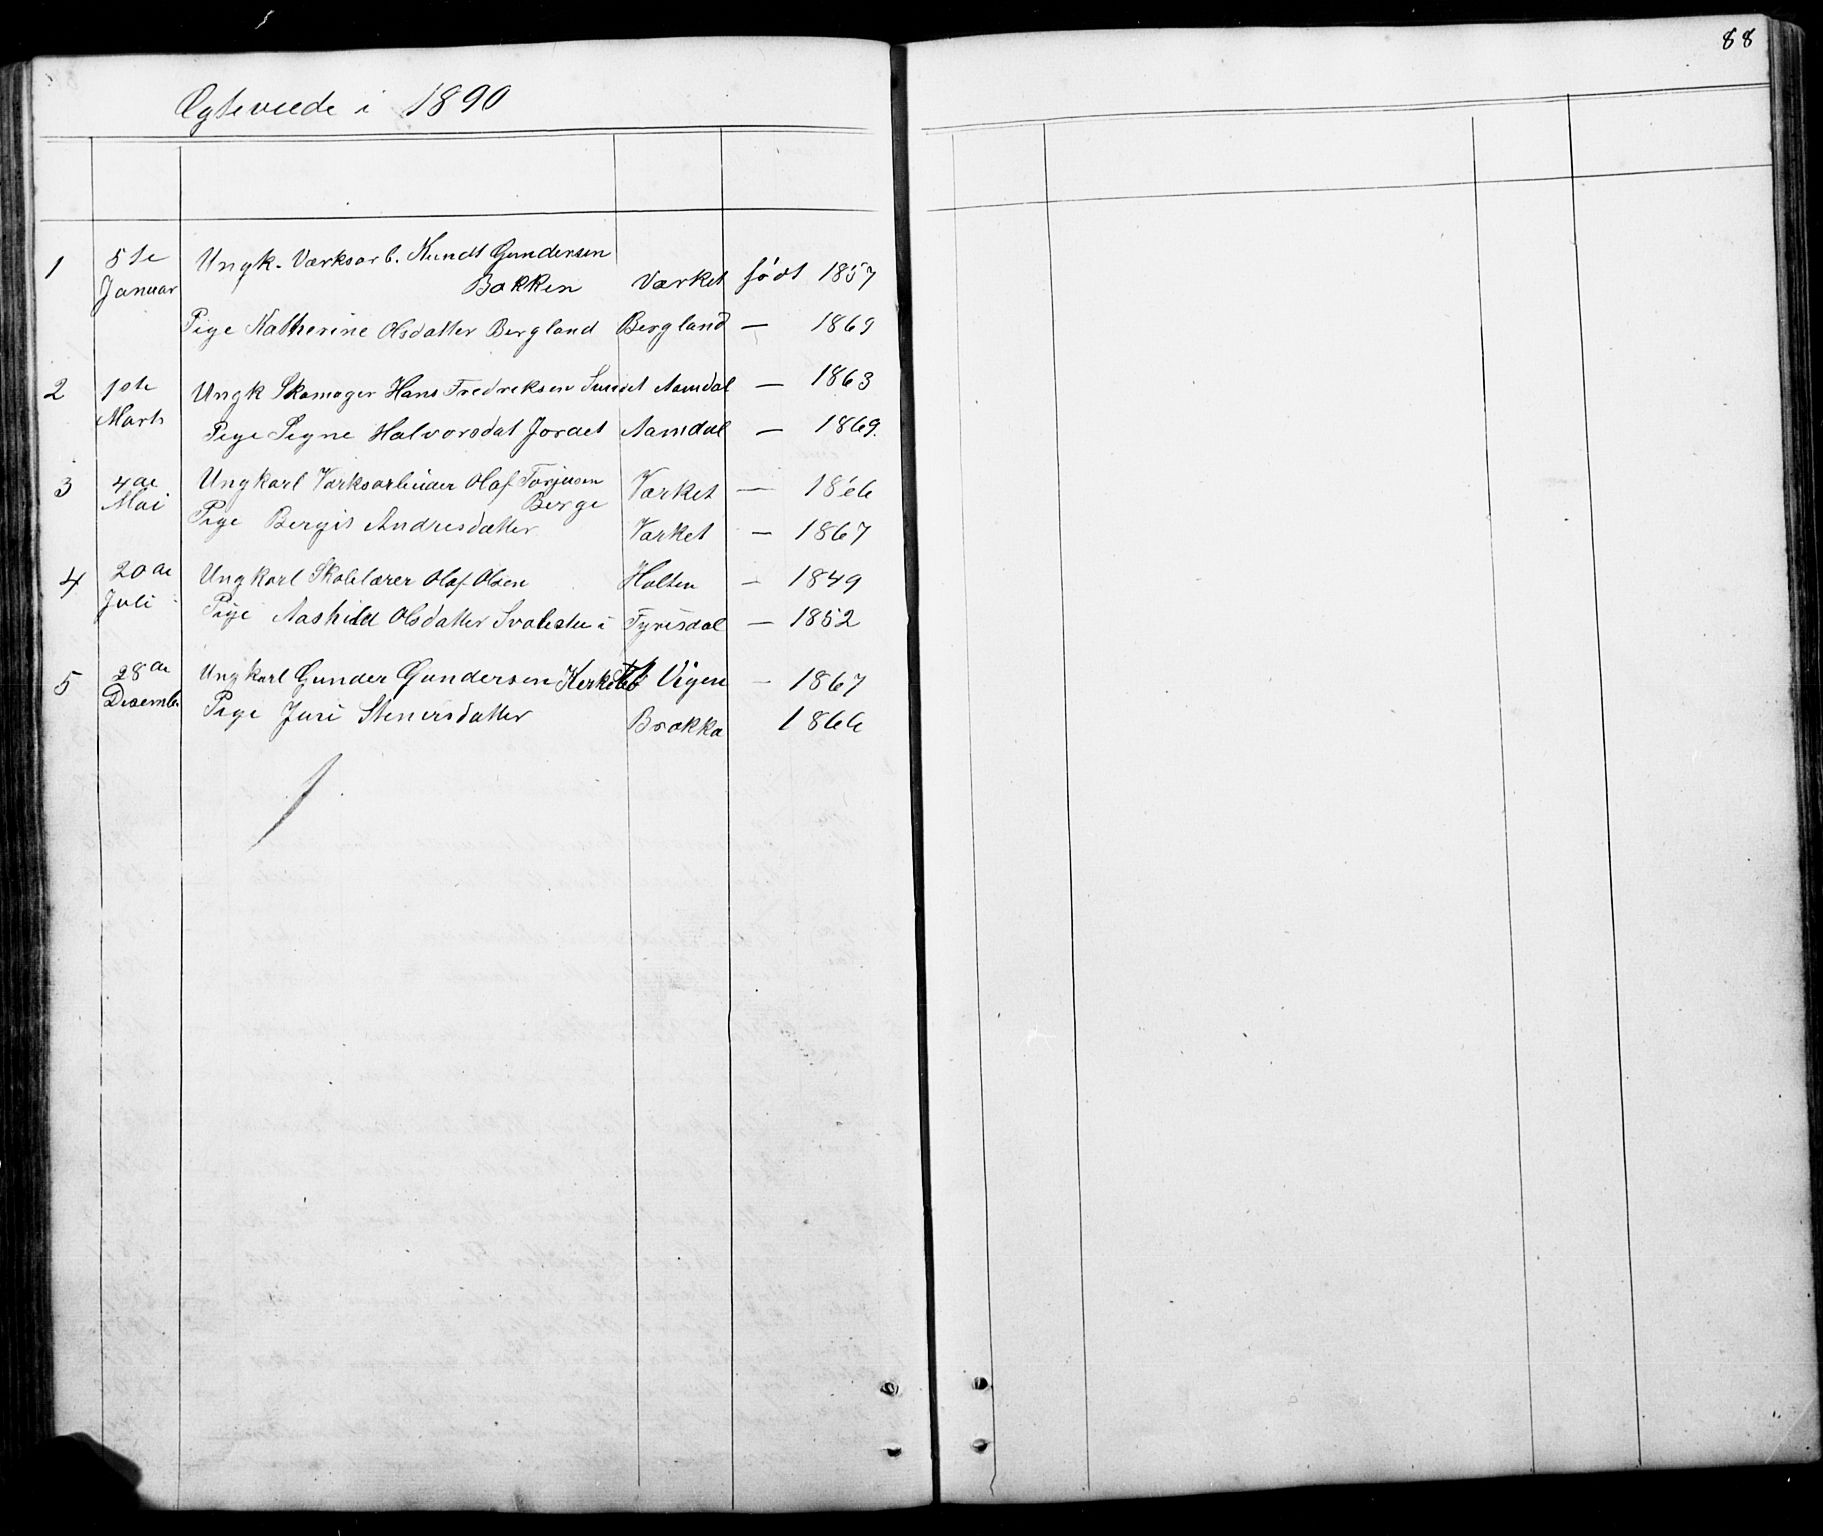 88
Ægteviede i 1890
1 5te Januar Ungk. Værksarb. Knudt Gundersen
Bakken Værket født 1857
Pige Katherine Olsdatter Bergland Bergland — 1869
2 1ste Marts Ungk Skomager Hans Fredreksen Sundet Aamdal — 1863
Pige Signe Halvorsdat Jordet Aamdal — 1869.
3 4de Mai Ungkarl Værksarbeider Olaf Torjusen
Berge Værket — 1866
Pige Bergit Andresdatter Værket — 1867
4 20de Juli Ungkarl Skolelærer Olaf Olsen Holten — 1849
Pige Aashild Olsdatter Svalestu i Tyrisdal — 1852
5 28de Desemb. Ungkarl Gunder Gundersen Vigen — 1867
Pige Juri Stenersdatter Brokka 1866